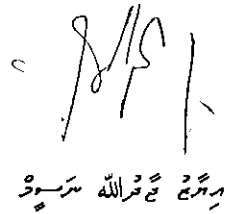 އިޔާޒު ޖާދުالله ނަސީމް